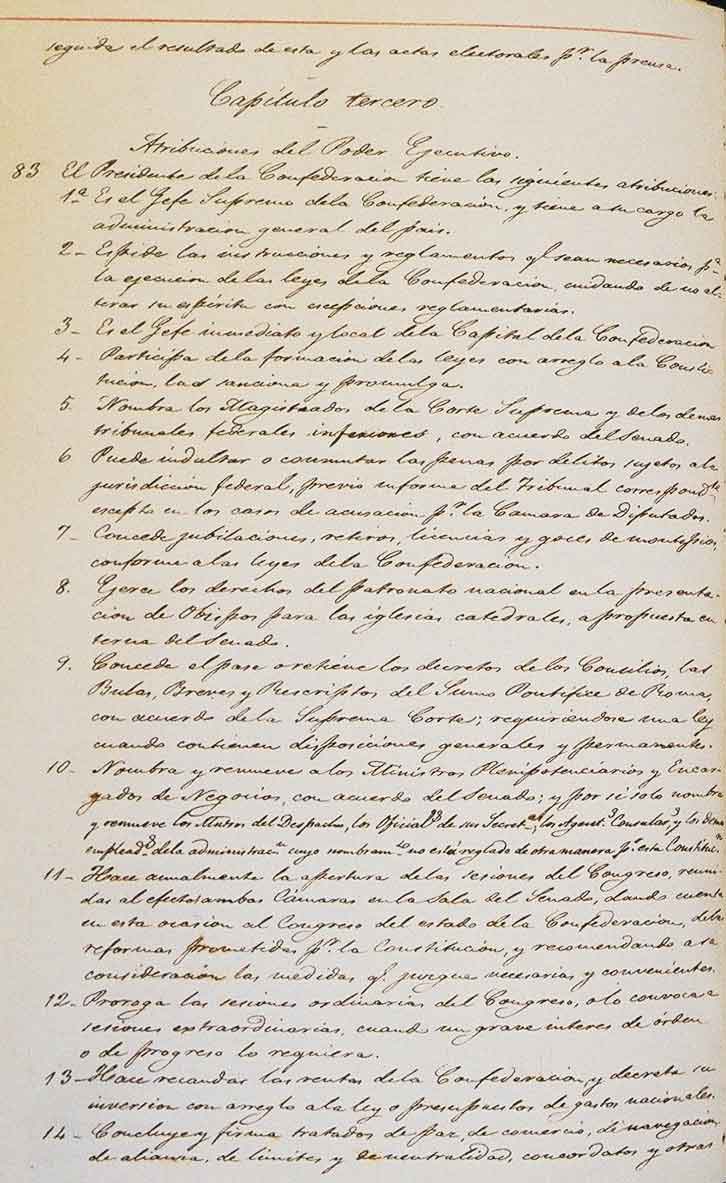 seguida el resultado de esta y las actas electorales pr. la prensa.
Capítulo tercero
Atribuciones del Poder Ejecutivo.
83 El Presidente de la Confederacion tiene las siguientes atribuciones:
1.a Es el Gefe Supremo de la Confederacion, y tiene a su cargo la
administracion general del pais.
2 - Espide las instrucciones y reglamentos qe sean necesarios pa
la ejecucion de las leyes de la Confederacion, cuidando de no al-
terar su espíritu con escepciones reglamentarias.
3 - Es el Gefe inmediato y local de la Capital de la Confederacion
4 - Participa de la formacion de las leyes con arreglo a la Consti-
tucion, las sanciona y promulga.
5. Nombra los Magistrados de la Corte Suprema y de los demas
tribunales federales inferiores, con acuerdo del Senado.
6 Puede indultar o conmutar las penas por delitos sujetos a la
jurisdiccion federal, previo informe del Tribunal correspondte
escepto en los casos de acusacion pr. la Camara de Diputados.
7 - Concede jubilaciones, retiros, licencias y goces de montepios,
conforme a las leyes de la Confederacion.
8. Ejerce los derechos del patronato nacional en la presenta-
cion de Obispos para las iglesias catedrales, a propuesta en
terna del Senado.
9. Concede el pase o retiene los decretos de los Consilios, las
Bulas, Breves y Rescriptos del Sumo Pontifice de Roma,
con acuerdo de la Suprema Corte; requiriendose una ley
cuando contienen disposiciones generales y permanentes.
10 - Nombra y remueve a los Ministros Plenipotenciarios y Encar-
gados de Negocios, con acuerdo del Senado; y por si solo nombra
y remueve los Mntros del Despacho, los Oficials de sus Secretas, los Agents Consulars y los demas
empleads de la administracn cuyo nombramto no está reglado de otra manera pr. esta Constitucn
11 - Hace anualmente la apertura de las sesiones del Congreso, reuni-
das al efecto ambas Cámaras en la Sala del Senado, dando cuenta
en esta ocasion al Congreso del estado de la Confederacion, de las
reformas prometidas pr. la Constitucion, y recomendando a su
consideracion las medidas qe. juzgue necesarias y convenientes.
12 - Proroga las sesiones ordinarias del Congreso, o lo convoca a
sesiones extraordinarias, cuando un grave interes de órden
o de progreso lo requiera.
13 - Hace recaudar las rentas de la Confederacion, y decreta su
inversion con arreglo a la ley o presupuestos de gastos nacionales.
14 - Concluye y firma tratados de paz, de comercio, de navegacion,
de alianza, de límites y de neutralidad, concordatos y otras